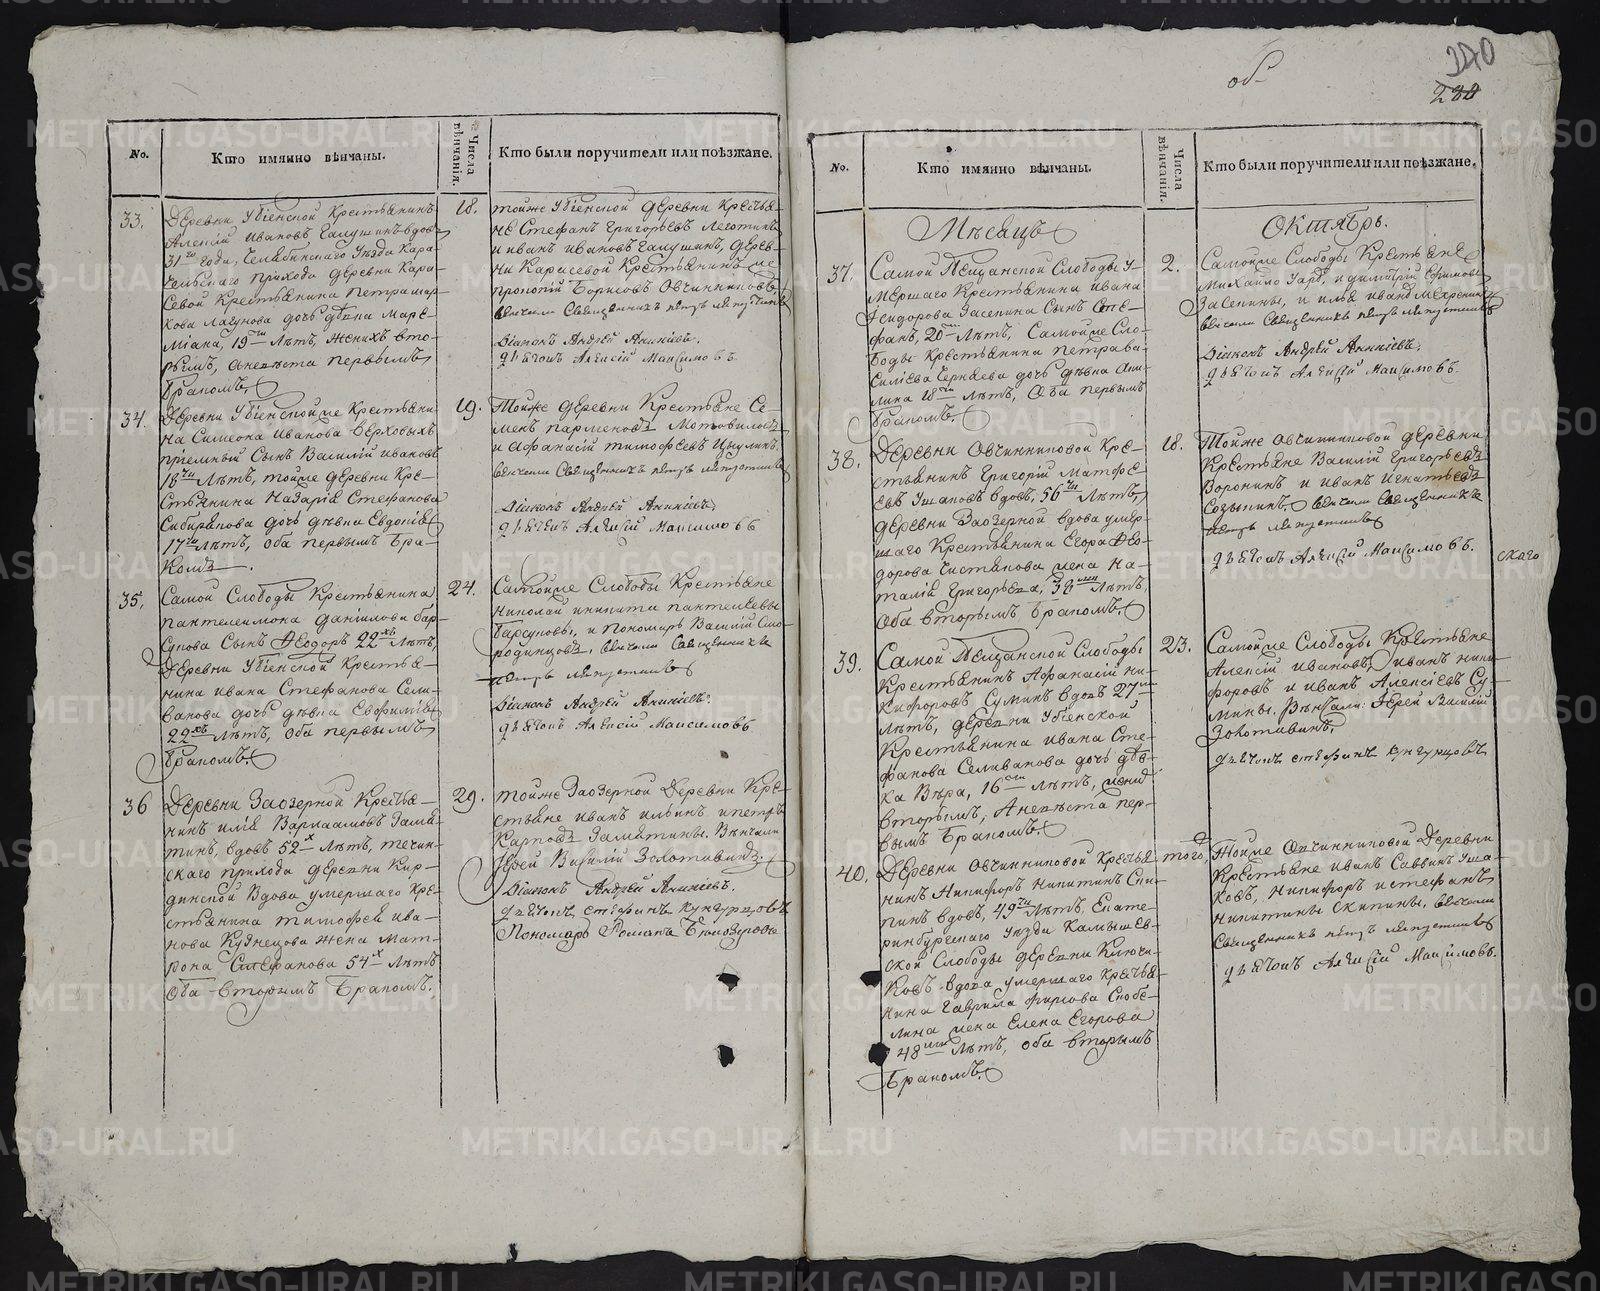 об
340
280
No.
Кто имянно вѣнчаны.
Числа вѣнчанія.
Кто были поручители или поѣзжане.
33.
Деревни Убіенской Крестьянинъ
Алексій Ивановъ Галушинъ вдовъ
31 го года, Челябинскаго уѣзда Кара-
чельскаго прихода деревни Кара-
севой Крестьянина Петра Мар-
кова Лагунова дочь дѣвка Маре-
міана, 19 ти лѣтъ, женихъ вто-
рымъ, а невѣста первымъ
бракомъ.
18.
Тойже Убіенской деревни Крестья-
не Стефанъ Григорьевъ Леготинъ
и Иванъ Ивановъ Галушинъ, дерев-
ни Карасевой Крестьянинъ
Прокопій Борисовъ Овчинниковъ,
вѣнчали Священникъ Петръ
Діаконъ Андрей Аникіевъ.
дьячокъ Алексій Максимовъ.
34.
Деревни Убіенской же Крестьяни-
на Симеона Иванова Верховыхъ
пріемный сынъ Василій Ивановъ
18 ти лѣтъ, тойже деревни Кре-
стьянина Назарія Стефанова
Сибирякова дочь дѣвка Евдокія
17 ти лѣтъ, оба первымъ бра-
комъ.
19.
Тойже деревни Крестьяне Се-
менъ Парменовъ Мотовиловъ
и Афанасій Тимофеевъ Цыулинъ
вѣнчали Священникъ Петръ
Діаконъ Андрей Аникіевъ
дьячокъ Алексій Максимовъ
35.
Самой Слободы Крестьянина
Пантелеимона Даніилова Бар-
сукова сынъ Ѳеодоръ 22 хъ лѣтъ,
Деревни Убіенской Крестья-
нина Ивана Стефанова Сели-
ванова дочь дѣвка Евфимія
22 хъ лѣтъ, оба первымъ
бракомъ.
24.
Самойже Слободы Крестьяне
Николай и Никита Пантелеевы
Барсуковы, и Пономарь Василій Смо-
родинцовъ, вѣнчали Священникъ
Петръ
Діаконъ Андрей Аникіевъ.
дьячокъ Алексій Максимовъ
36
Деревни Заозерной Крестья-
нинъ Илія Варлаамовъ Замя-
тинъ, вдовъ 52 х лѣтъ, Течин-
скаго прихода деревни Кир-
динской вдова умершаго Кре-
стьянина Тимофея Ива-
нова Кузнецова жена Мат-
рона Стефанова 54 х лѣтъ
оба вторымъ бракомъ.
29.
Тойже Заозерной деревни Кре-
стьяне Иванъ Ильинъ и Петръ
Карповъ Замятины. Вѣнчали
Іерей Василій Золотавинъ.
Діаконъ Андрей Аникіевъ.
дьячокъ Стефанъ Кунгурцовъ
Пономарь Романъ
No.
Кто имянно вѣнчаны.
Числа вѣнчанія.
Кто были поручители или поѣзжане.
Мѣсяцъ
Октябрь.
37.
Самой Пещанской Слободы у-
мершаго Крестьянина Ивана
Ѳеидорова Засепина сынъ Сте-
фанъ, 20 ти лѣтъ, Самойже Сло-
боды Крестьянина Петра Ва-
силіева Черкаева дочь дѣвка Аки-
лина 18 ти лѣтъ, оба первымъ
бракомъ.
2.
Самойже Слободы Крестьяне
Михайло и Димитрій Ефимовы
Засепины, и Илья Ивановъ
вѣнчали Священникъ Петръ
Діаконъ Андрей Аникіевъ.
дьячокъ Алексій Максимовъ.
38.
Деревни Овчинниковой Кре-
стьянинъ Григорій Матфе-
евъ Ушаковъ вдовъ, 56 ти лѣтъ,
деревни Заозерной вдова умер-
шаго Крестьянина Егора Ѳео-
дорова Чистякова жена На-
талія Григорьева, 38 ми лѣтъ,
оба вторымъ бракомъ.
18.
Тойже Овчинниковой деревни
Крестьяне Василій Григорьевъ
Воронинъ и Иванъ Игнатьевъ
Созыкинъ. вѣнчали Священникъ
Петръ
дьячокъ Алексій Максимовъ.
скаго
39.
Самой Пещанской Слободы
Крестьянинъ Афанасій Ни-
кифоровъ Суминъ вдовъ 27 ми
лѣтъ, деревни Убіенской
Крестьянина Ивана Сте-
фанова Селиванова дочь дѣв-
ка Вѣра, 16 ти лѣтъ, женихъ
вторымъ, а невѣста пер-
вымъ бракомъ.
23.
Самойже Слободы Крестьяне
Алексій Ивановъ, Иванъ Ники-
форовъ и Иванъ Алексіевъ Су-
мины. Вѣнчали: Іерей Василій
Золотавинъ.
дьячокъ Стефанъ Кунгурцовъ
40.
Деревни Овчинниковой Крестья-
нинъ Никифоръ Никитинъ Ски-
пинъ вдовъ, 49 ти лѣтъ, Екате-
ринбургскаго уѣзда Камышев-
ской Слободы деревни Ключи-
ковъ вдова умершаго Крестья-
нина Гаврила Фирсова Скобе-
лина жена Елена Егорова
48 ми лѣтъ, оба вторымъ
бракомъ.
того,
Тойже Овчинниковой деревни
Крестьяне Иванъ Саввинъ Уша-
ковъ, Никифоръ и Стефанъ
Никитины Скипины, вѣнчали
Священникъ Петръ
дьячокъ Алексій Максимовъ.
METRIKI.GASO-URAL.RU